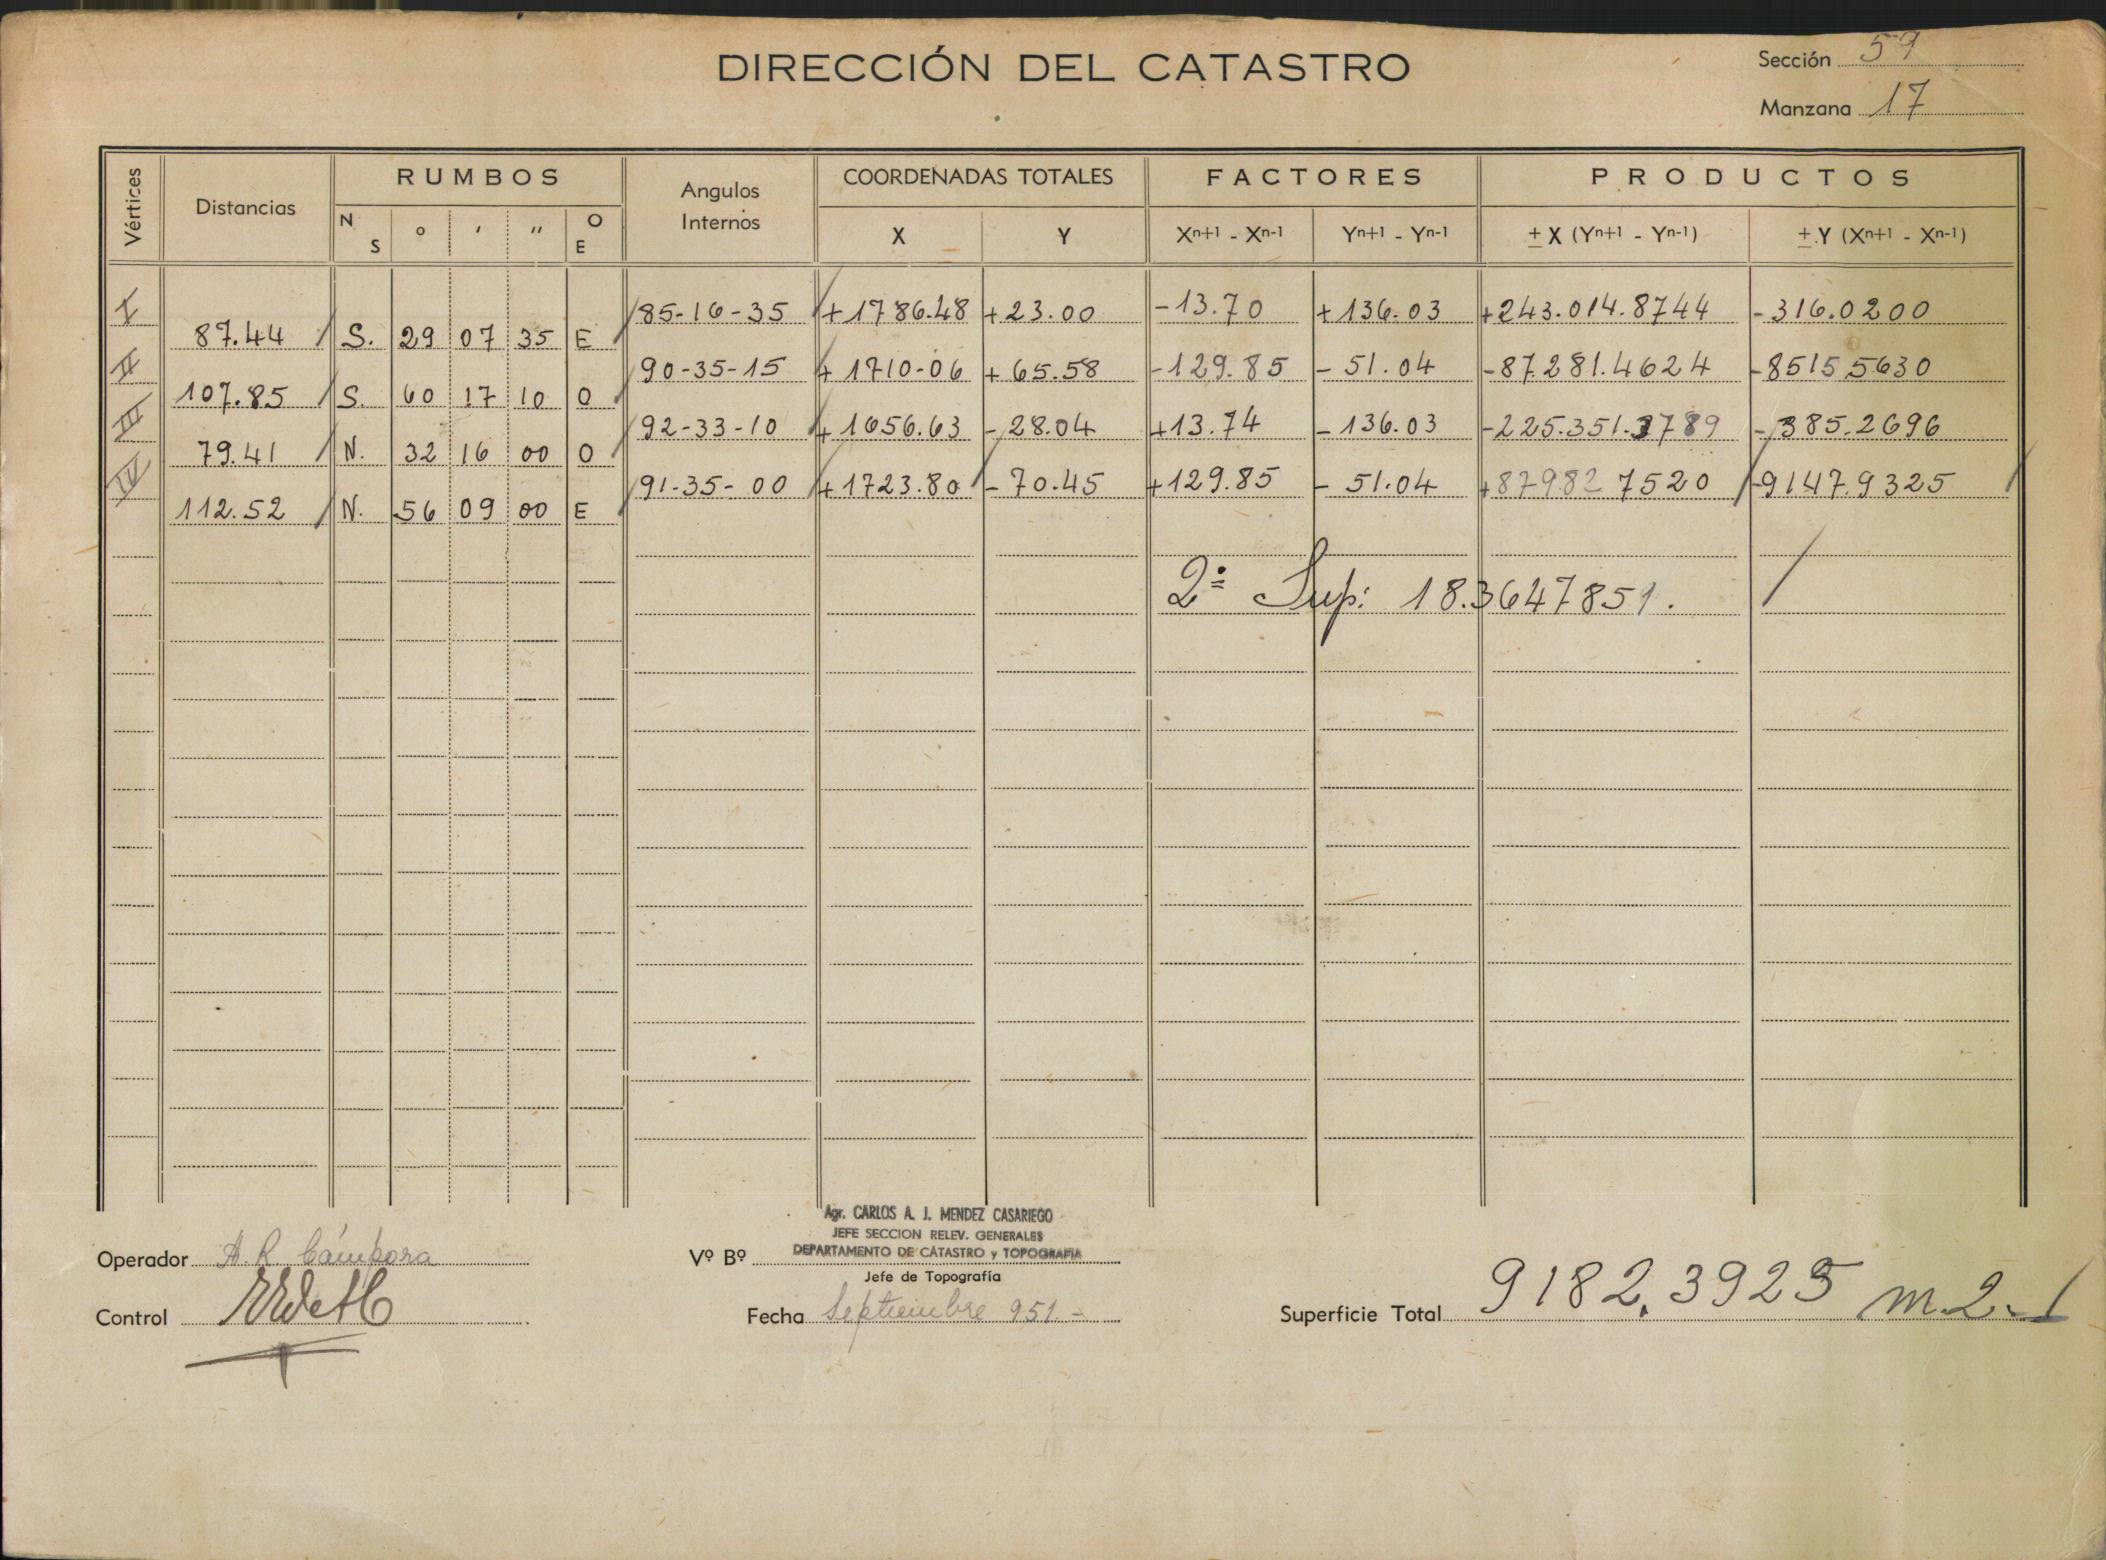 DIRECCIÓN DEL CATASTRO
Sección 59
Manzana 17
Vértices Distancias RUMBOS Angulos Internos COORDENADAS TOTALES FACTORES PRODUCTOS
N S ° ' " O E X Y Xn+1 - Xn-1 Yn+1 - Yn-1 ± X (Yn+1 - Yn-1) ± Y (Xn+1 - Xn-1)
I 85-16-35 +1786.48 +23.00 -13.70 +136.03 +243.014.8744 -316.0200
87.44 S. 29 07 35 E
II 90-35-15 +1710-06 +65.58 -129.85 -51.04 -87.281.4624 -8515 5630
107.85 S. 60 17 10 O
III 92-33-10 +1656.63 -28.04 +13.74 -136.03 -225.351.3789 -385.2696
79.41 N. 32 16 00 O
IV 91-35-00 +1723.80 -70.45 +129.85 -51.04 +87982 7520 -9147.9325
112.52 N. 56 09 00 E
2= Sup: 18.3647851.
Agr. CARLOS A. J. MENDEZ CASARIEGO
JEFE SECCION RELEV. GENERALES
DEPARTAMENTO DE CATASTRO y TOPOGRAFIA
Operador A. R. Cámpora
Vº Bº
Jefe de Topografía
Control
Fecha Septiembre 951.-
Superficie Total 9182.3925 m.2.-